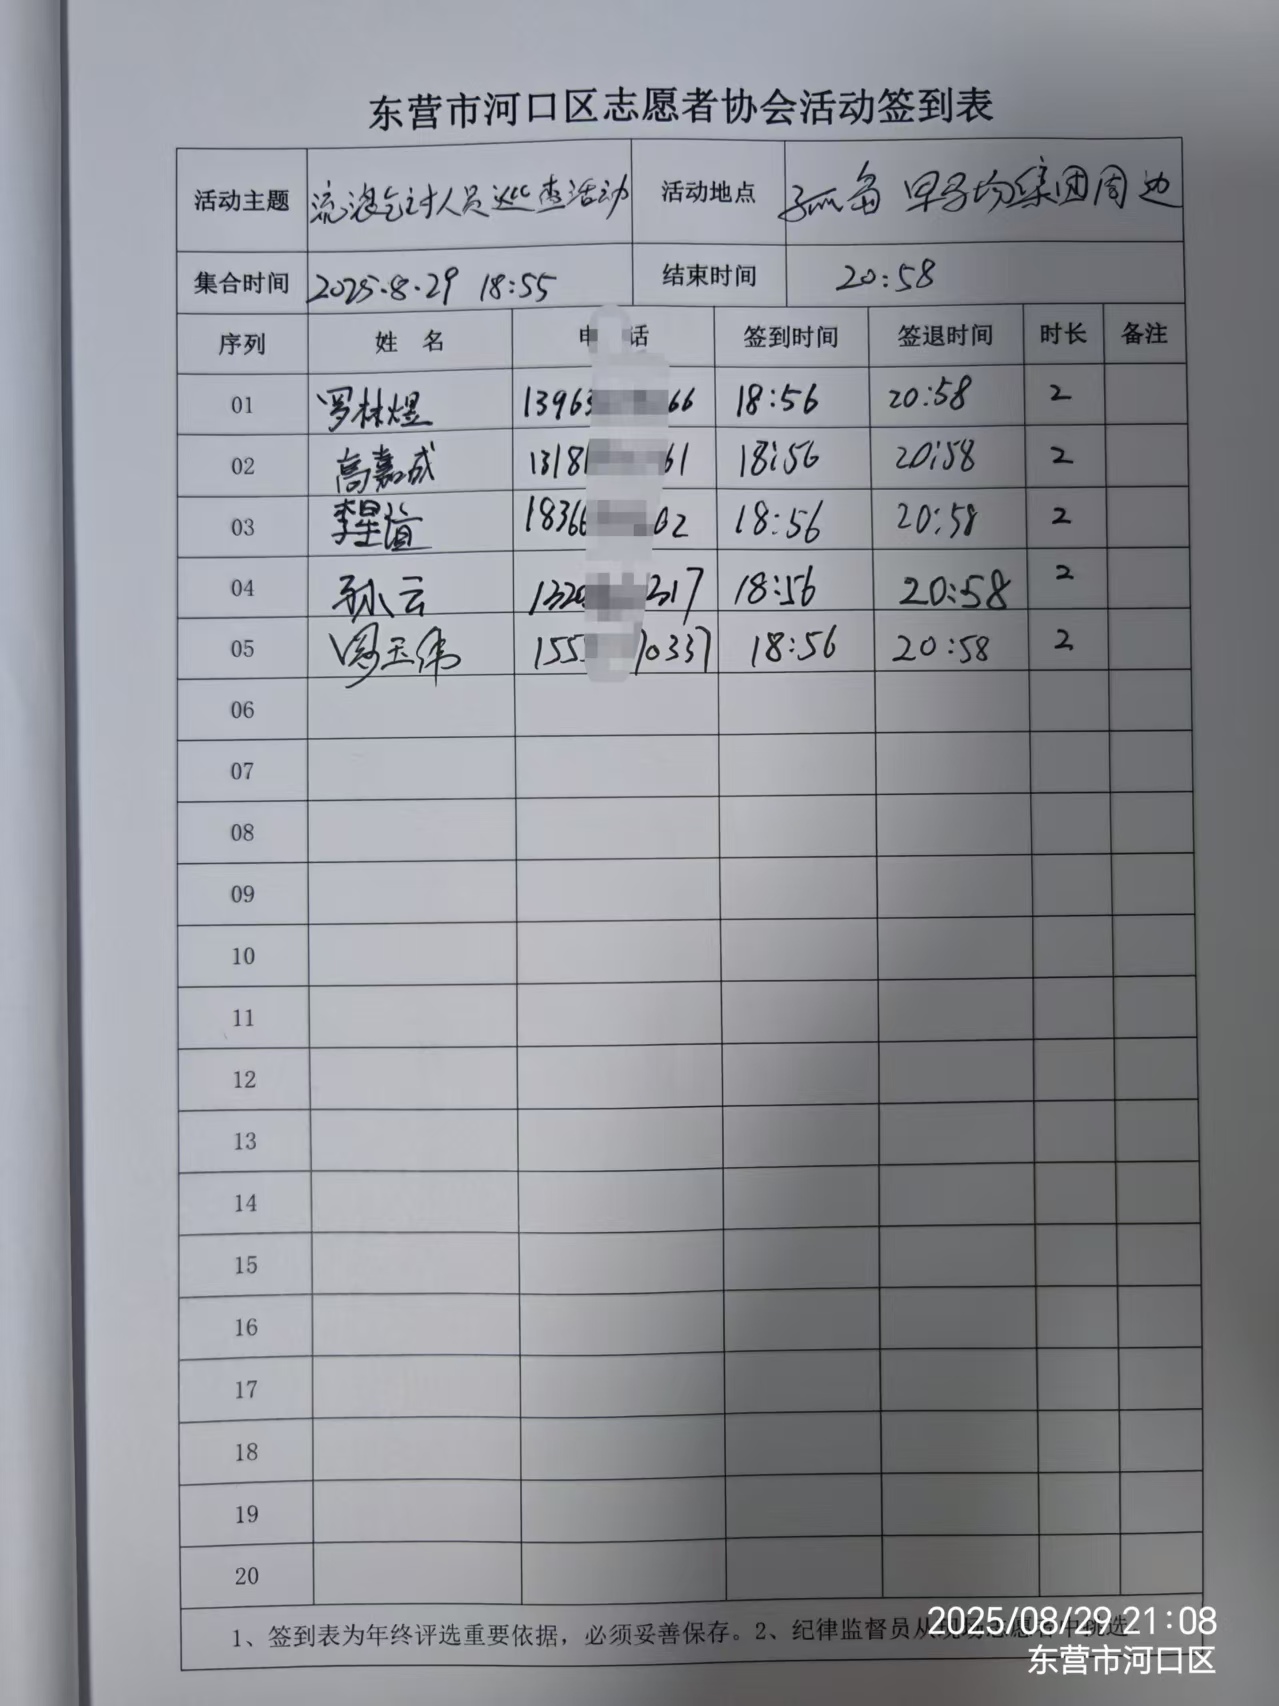 东营市河口区志愿者协会活动签到表
活动主题 流浪乞讨人员巡查活动 活动地点 孤岛 集团周边
集合时间 2025.8.29 18:55 结束时间 20:58
序列 姓 名 电 话 签到时间 签退时间 时长 备注
01 罗林煜 13963 66 18:56 20:58 2
02 高嘉成 1318 61 18:56 20:58 2
03 李星 18366 02 18:56 20:58 2
04 孙云 1320 317 18:56 20:58 2
05 周玉伟 155 10337 18:56 20:58 2
06
07
08
09
10
11
12
13
14
15
16
17
18
19
20
1、签到表为年终评选重要依据，必须妥善保存。2、纪律监督员从现场志愿者中挑选
2025/08/29 21:08
东营市河口区